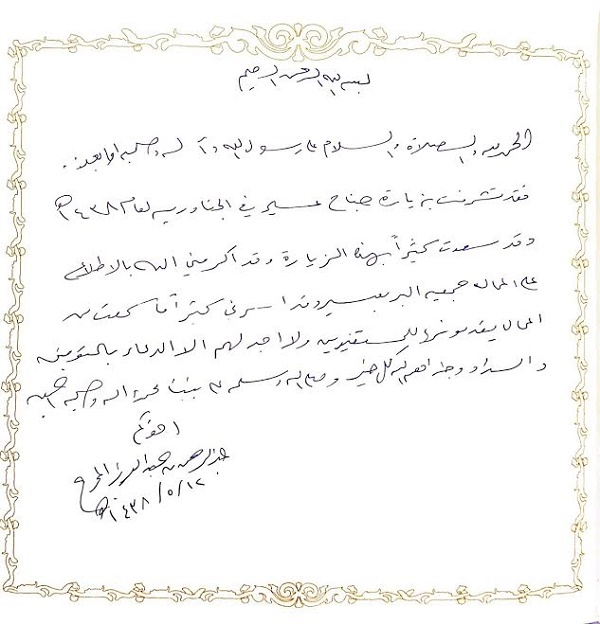 بسم الله الرحمن الرحيم
الحمد لله والصلاة والسلام على رسول الله وآله وصحبه أما بعد:.
فقد تشرفت بزيارة جناح عسير في الجنادرية لعام ١٤٣٨هـ
وقد سعدت كثيراً بهذه الزيارة وقد أكرمني الله بالاطلاع
على أعمال جمعية البر بعسير وقد أسرني كثيراً ما سمعت من
أعمال يقدمونها للمستفيدين ولا أجد لهم إلا الدعاء بالتوفيق
والسداد وجزاهم الله كل خير وصلى الله وسلم على نبينا محمد وآله وصحبه أجمعين
أخوكم
عبدالرحمن بن عبدالعزيز
١٤٣٨/٥/١٢هـ